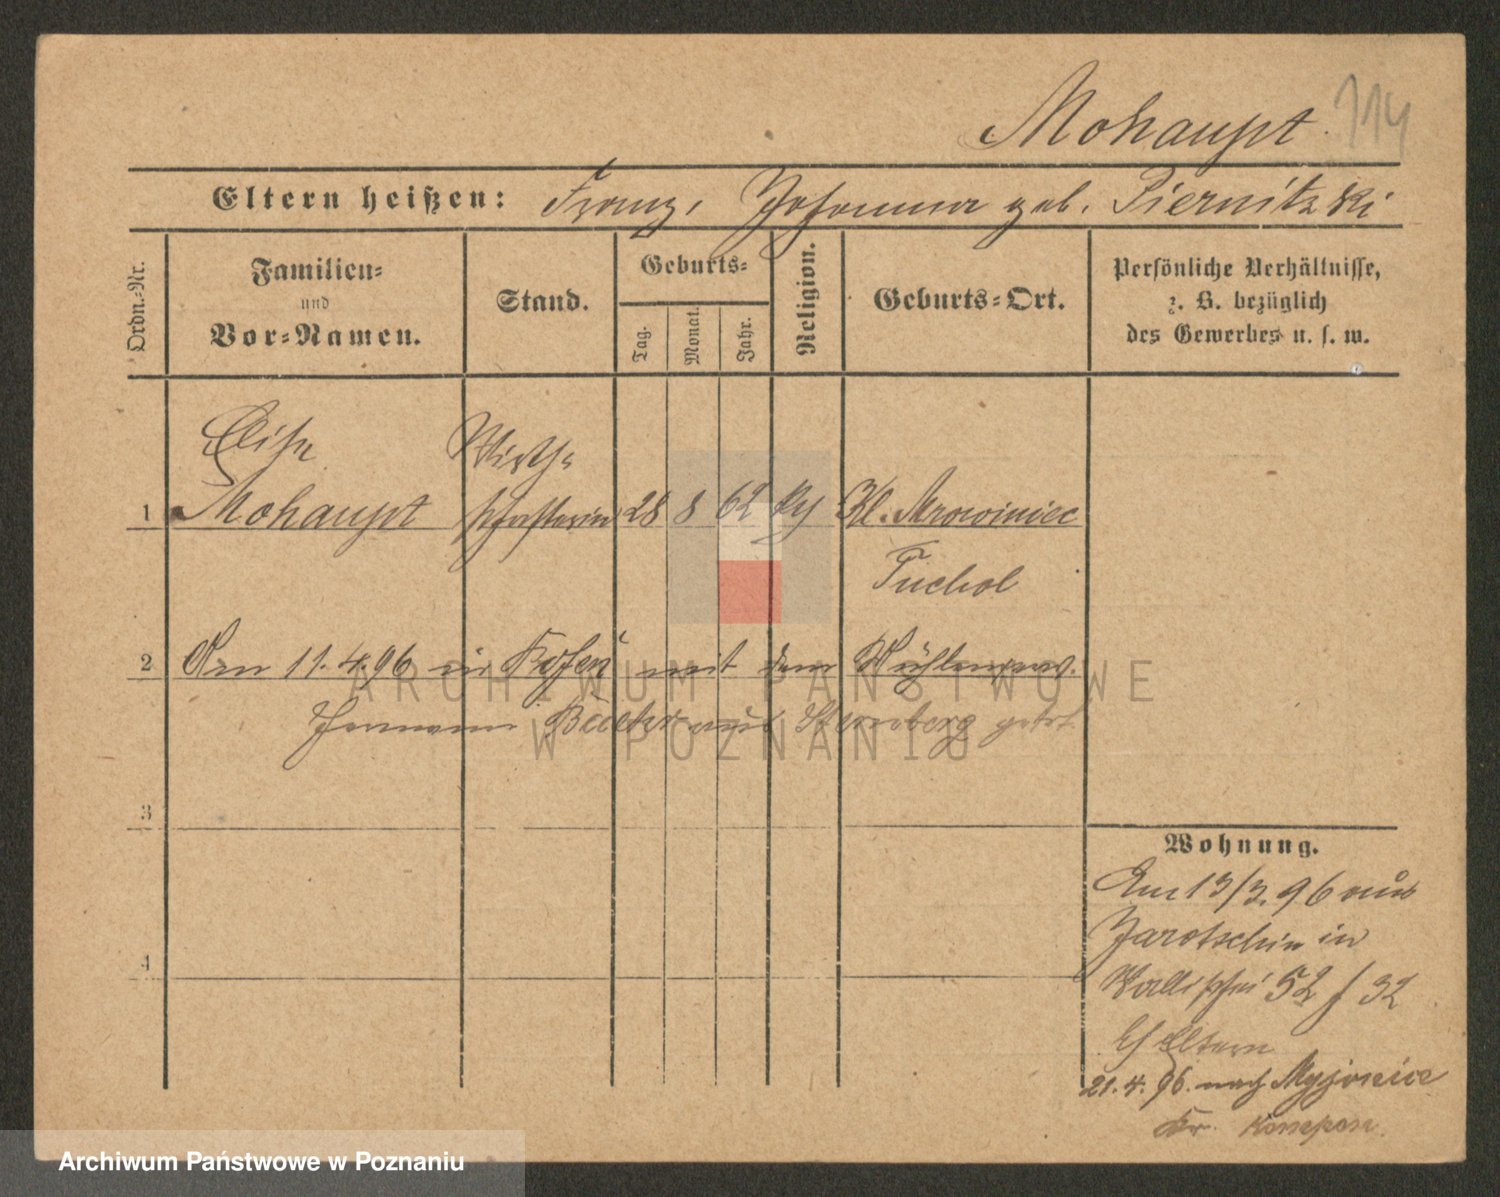 Mohaupt. 114
Eltern heißen: Franz, Johanna geb. Piernitzki
Ordn.-Nr.
Familien-
und
Vor-Namen.
Stand.
Geburts-
Tag.
Monat.
Jahr.
Religion.
Geburts-Ort.
Persönliche Verhältnisse,
z. B. bezüglich
des Gewerbes u. s. w.
Elise Wirth-
1 Mohaupt schafterin 28 8 62 Kl. Mrowiniec
Tuchol
2 Am 11.4.96 in Posen mit dem
Hermann aus Sternberg getr.
3
4
Wohnung.
Am 13/3. 96 aus
Jarotschin in
Wallischei 52 / 32
Eltern
21.4.96. nach
Kr. Kempen.
ARCHIWUM PAŃSTWOWE
W POZNANIU
Archiwum Państwowe w Poznaniu